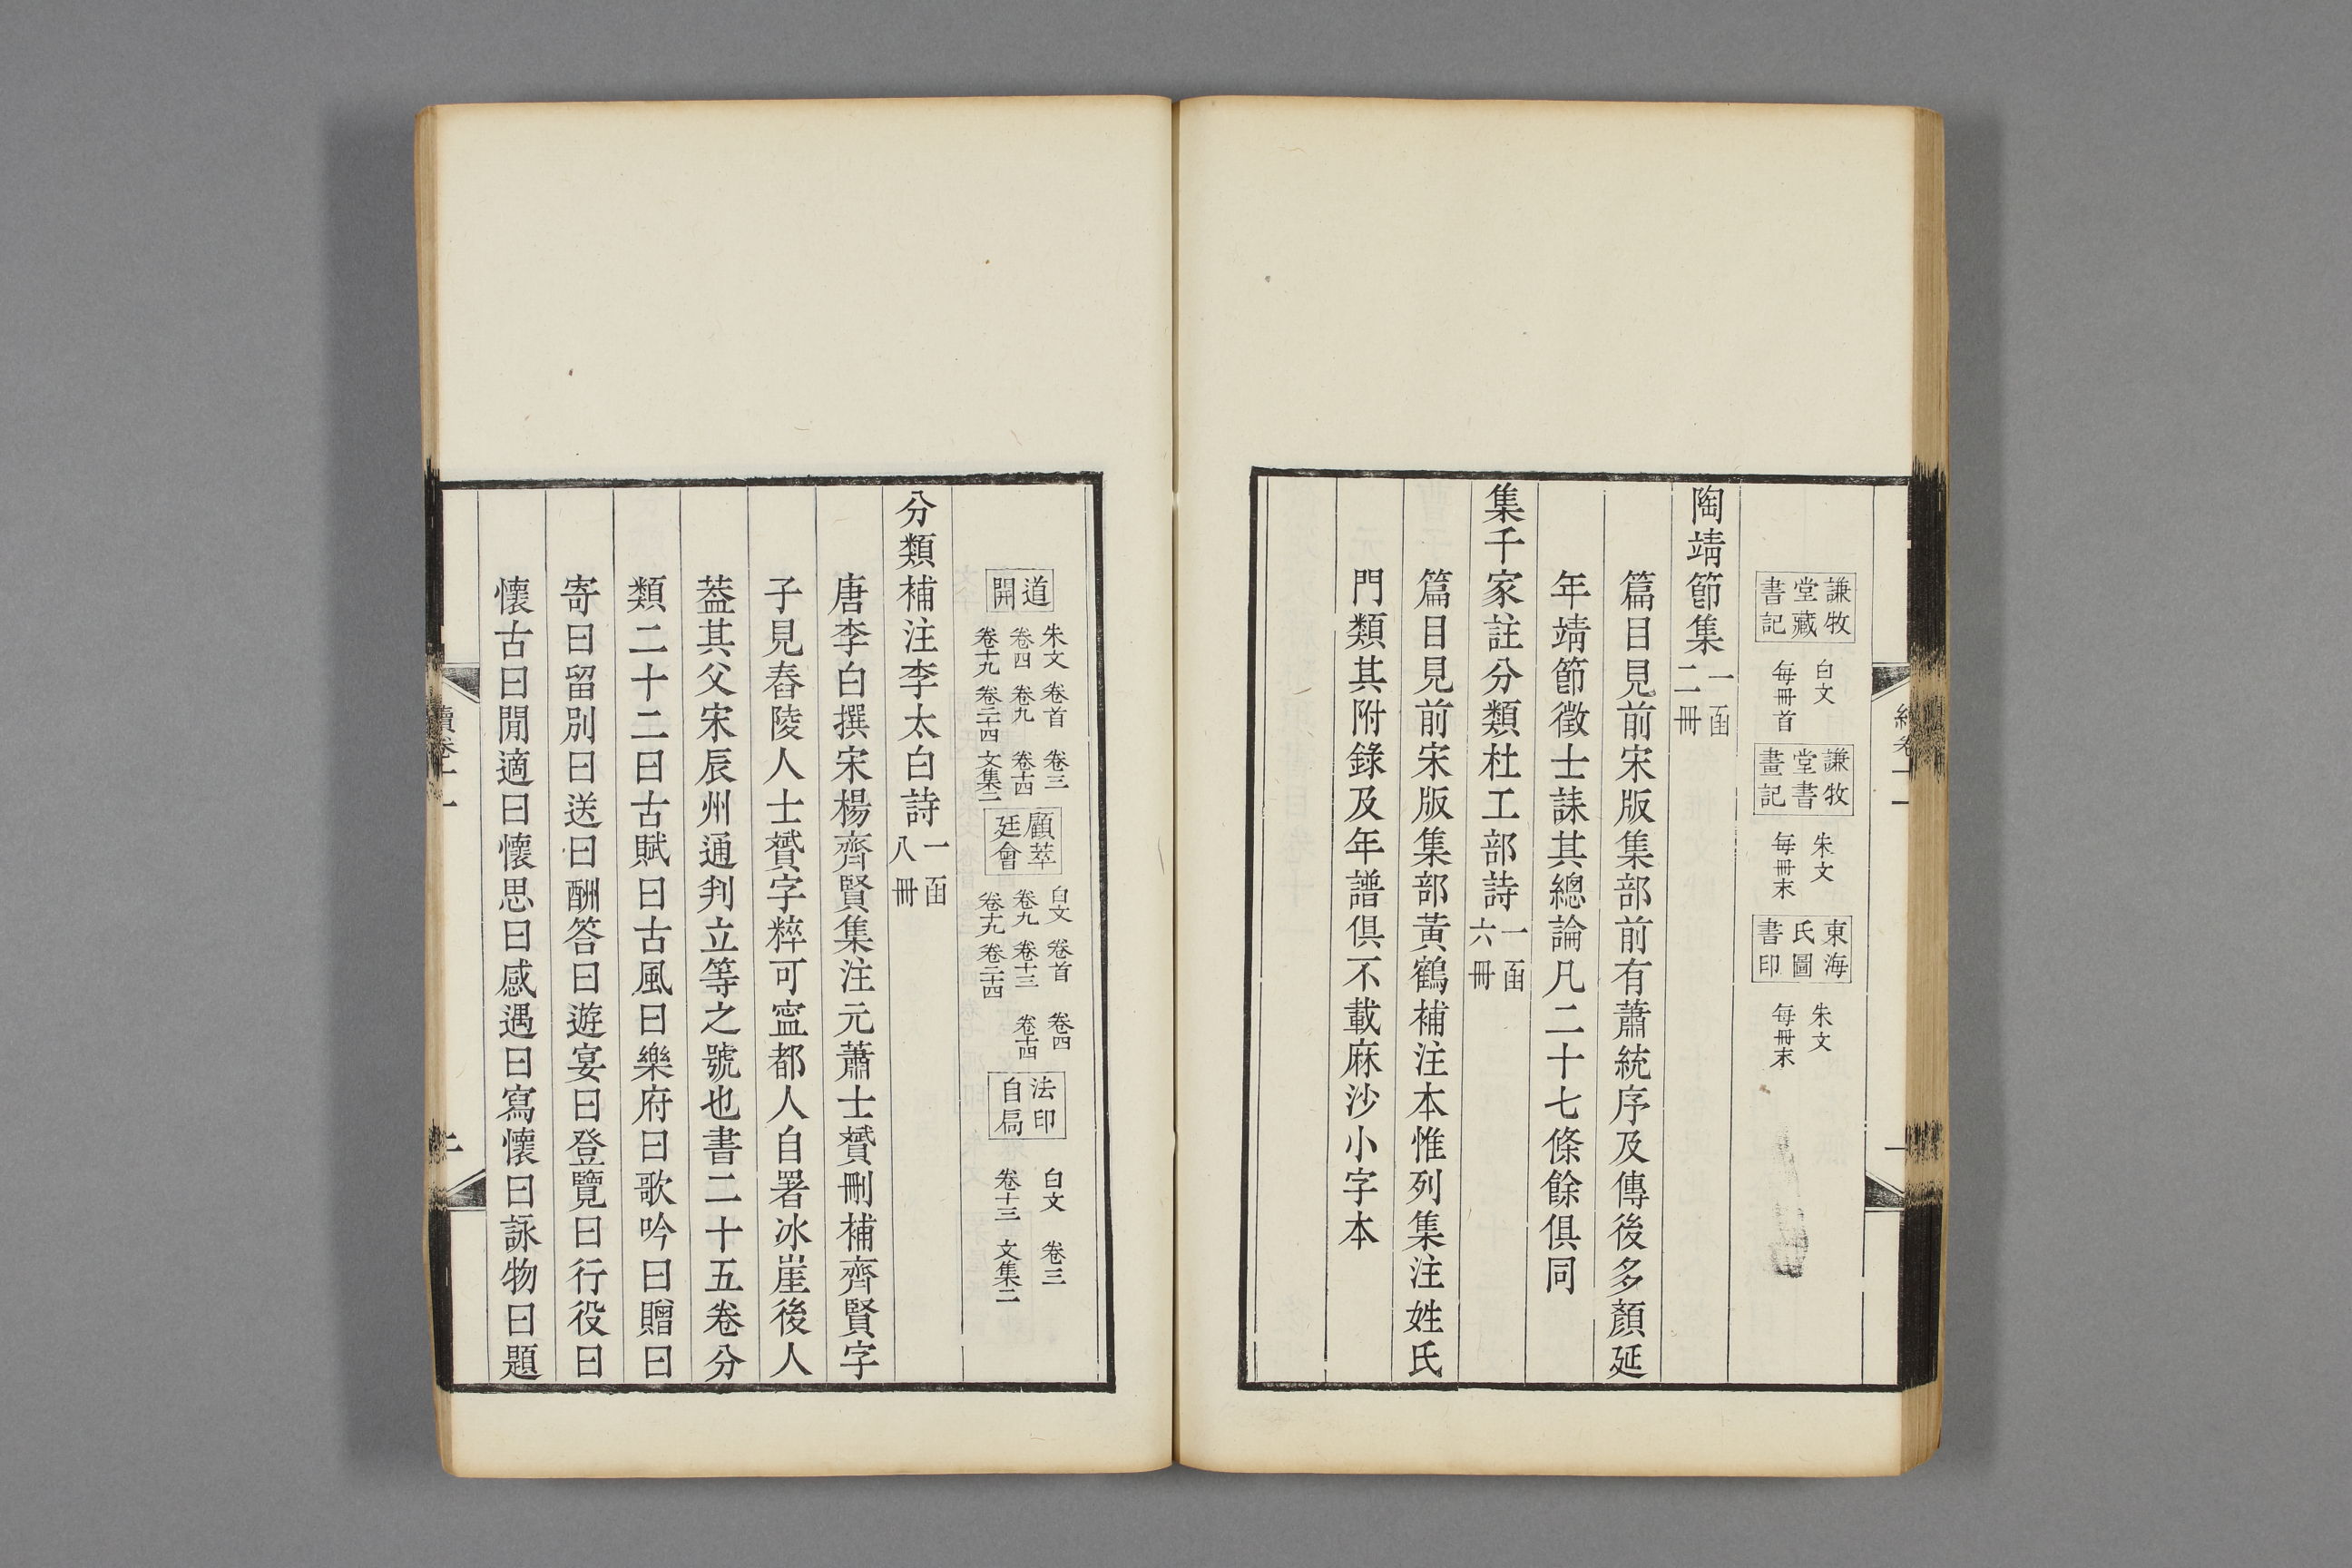 謙牧堂藏書記 白文 每冊首 謙牧堂書畫記 朱文 每冊末 東海氏圖書印 朱文 每冊末
陶靖節集 一函二冊
篇目見前宋版集部前有蕭統序及傳後多顏延
年靖節徵士誄其總論凡二十七條餘俱同
集千家註分類杜工部詩 一函六冊
篇目見前宋版集部黃鶴補注本惟列集注姓氏
門類其附錄及年譜俱不載麻沙小字本
道開 朱文 卷首 卷三 卷四 卷九 卷十四 卷十九 卷二十四 文集二 顧萃廷會 白文 卷首 卷四 卷九 卷十三 卷十四 卷十九 卷二十四 法印自扃 白文 卷三 卷十三 文集二
分類補注李太白詩 一函八冊
唐李白撰宋楊齊賢集注元蕭士贇刪補齊賢字
子見舂陵人士贇字粹可寍都人自署冰崖後人
葢其父宋辰州通判立等之號也書二十五卷分
類二十二曰古賦曰古風曰樂府曰歌吟曰贈曰
寄曰留別曰送曰酬答曰遊宴曰登覽曰行役曰
懷古曰閒適曰懷思曰感遇曰寫懷曰詠物曰題